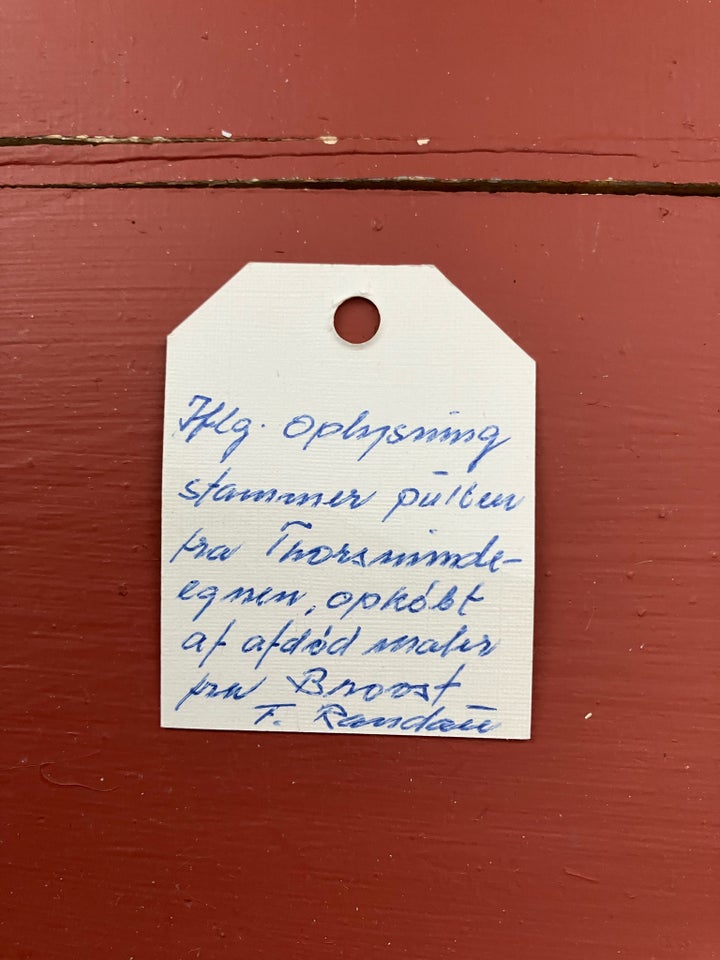 Iflg. oplysning
stammer pulten
fra Thorsminde-
egnen, opkøbt
af afdød maler
fra Brovst
F. Randau